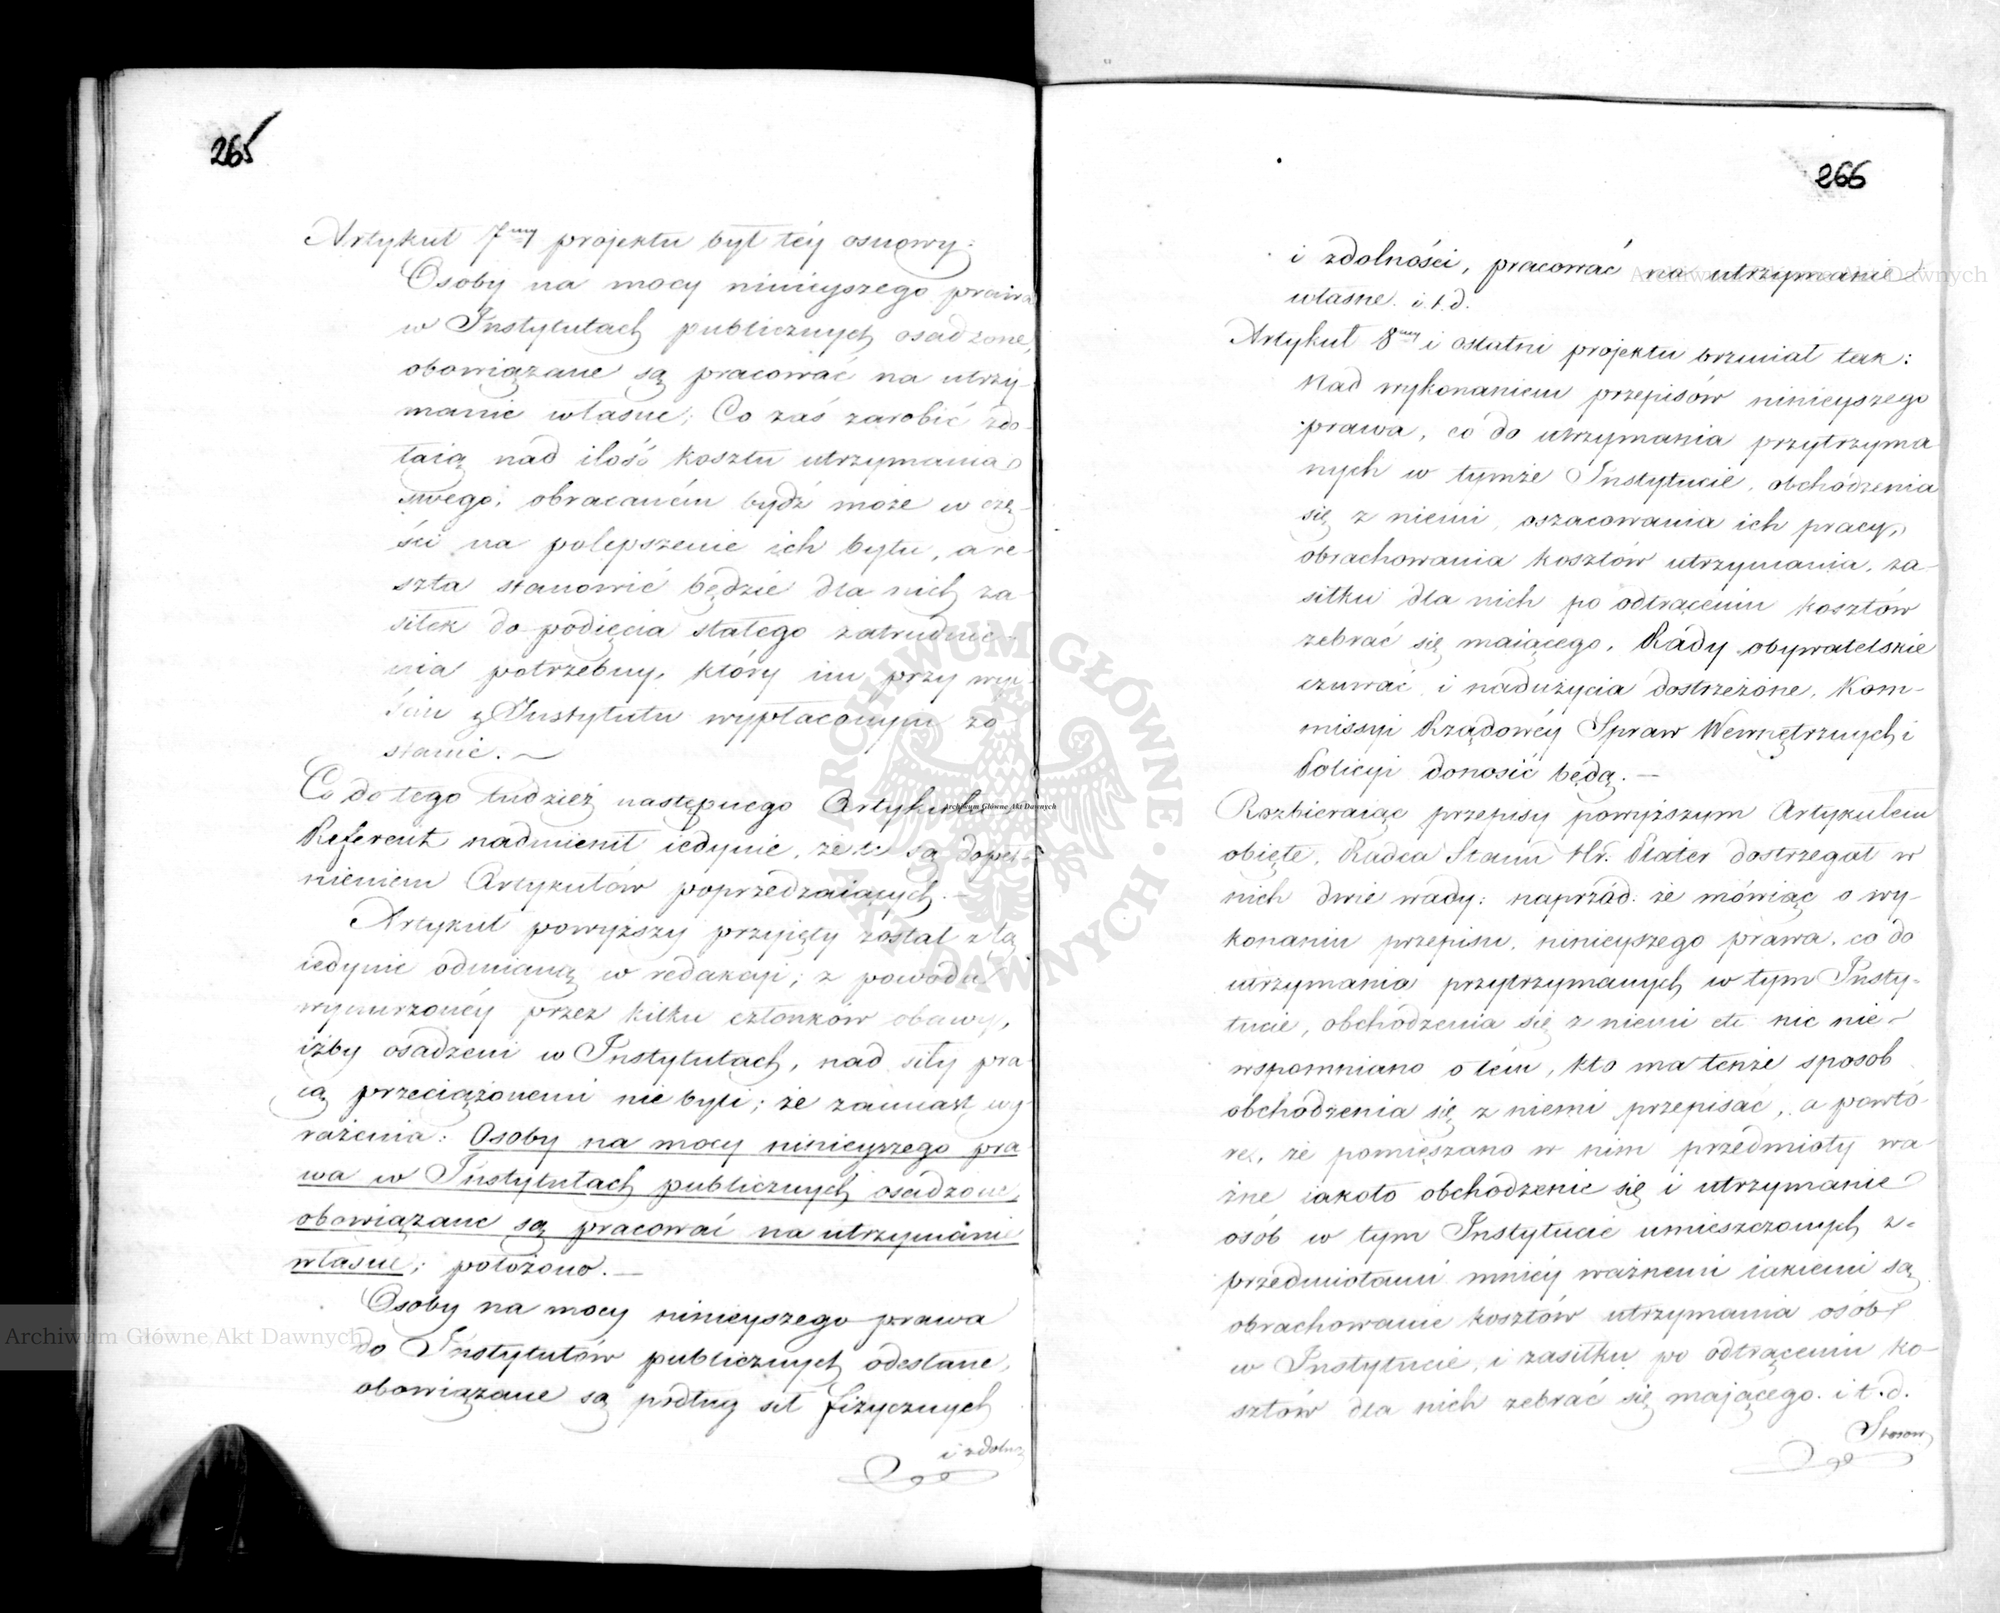 265
Artykuł 7my projektu był téy osnowy:
Osoby na mocy ninieyszego prawa
w Instytutach publicznych osadzone,
obowiązane są pracować na utrzy-
manie własne; Co zaś zarobić zdo-
łaią nad ilość kosztu utrzymania
swego, obracaném bydź może w czę-
ści na polepszenie ich bytu, a re-
szta stanowić będzie dla nich za
siłek do podięcia stałego zatrudnie-
nia potrzebny, który im przy wyi-
ściu z Instytutu wypłaconym zo-
stanie.
Co do tego tudzież następnego Artykułu
Referent nadmienił iedynie, że te są dopeł-
nieniem Artykułów poprzedzaiących.
Artykuł powyższy przyięty został z tą
iedynie odmianą w redakcyi; z powodu
wynurzonéy przez kilku członków obawy,
iżby osadzeni w Instytutach, nad siły pra-
cą przeciążonemi nie byli; że zamiast wy-
rażenia: Osoby na mocy ninieyszego pra
wa w Instytutach publicznych osadzone,
obowiązane są pracować na utrzymanie
własne; położono.
Osoby na mocy ninieyszego prawa
do Instytutów publicznych odesłane,
obowiązane są podług sił fizycznych
i zdoln
266
i zdolności, pracować na utrzymanie
własne. i.t.d.
Artykuł 8my i ostatni projektu brzmiał tak:
Nad wykonaniem przepisów ninieyszego
prawa, co do utrzymania przytrzyma
nych w tymże Instytucie, obchodzenia
się z niemi, oszacowania ich pracy,
obrachowania kosztów utrzymania, za-
siłku dla nich po odtrąceniu kosztów
zebrać się maiącego, Rady obywatelskie
czuwać i nadużycia dostrzeżone, Kom-
missyi Rządowéy Spraw Wewnętrznych i
Policyi donosić będą.
Rozbieraiąc przepisy powyższym Artykułem
obięte, Radca Stanu Hr. Plater dostrzegał w
nich dwie wady: naprzód: że mówiąc o wy-
konaniu przepisu, ninieyszego prawa, co do
utrzymania przytrzymanych w tym Insty-
tucie, obchodzenia się z niemi etc nic nie
wspomniano o tém, kto ma tenże sposob
obchodzenia się z niemi przepisać, a powtó-
re, że pomięszano w nim przedmioty wa-
żne iakoto obchodzenie się i utrzymanie
osób w tym Instytucie umieszczonych z
przedmiotami mniéy ważnemi iakiemi są
obrachowanie kosztów utrzymania osób
w Instytucie, i zasiłku po odtrąceniu ko-
sztów dla nich zebrać się mającego. i t.d.
Stosow
Archiwum Główne Akt Dawnych
ARCHIWUM GŁÓWNE AKT DAWNYCH
Archiwum Główne Akt Dawnych
Archiwum Główne Akt Dawnych